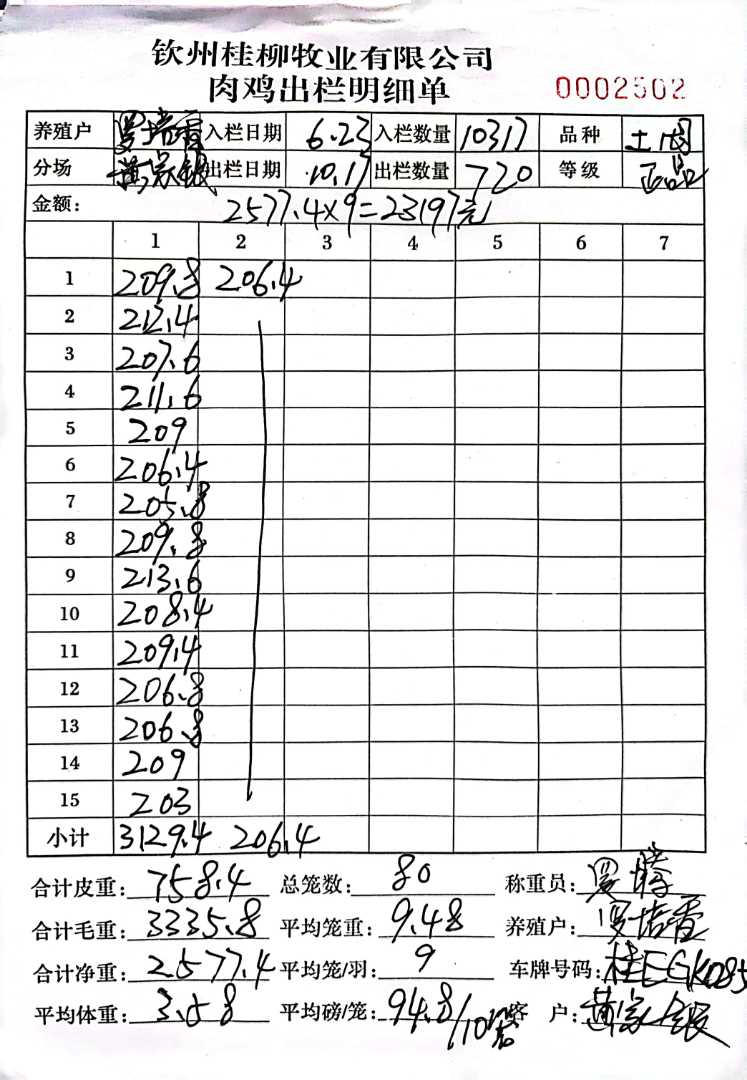 钦州桂柳牧业有限公司
肉鸡出栏明细单 0002502
养殖户 罗培香 入栏日期 6.23 入栏数量 10317 品种 土阉
分场 黄家银 出栏日期 10.17 出栏数量 720 等级 正品
金额: 2577.4×9=23197元
1 2 3 4 5 6 7
1 209.8 206.4
2 212.4
3 207.6
4 211.6
5 209
6 206.4
7 205.8
8 209.8
9 213.6
10 208.4
11 209.4
12 206.8
13 206.8
14 209
15 203
小计 3129.4 206.4
合计皮重: 758.4 总笼数: 80 称重员: 罗
合计毛重: 3335.8 平均笼重: 9.48 养殖户: 罗培香
合计净重: 2577.4 平均笼/羽: 9 车牌号码: 桂EGK085
平均体重: 3.58 平均磅/笼: 94.8/10笼 客 户: 黄家银